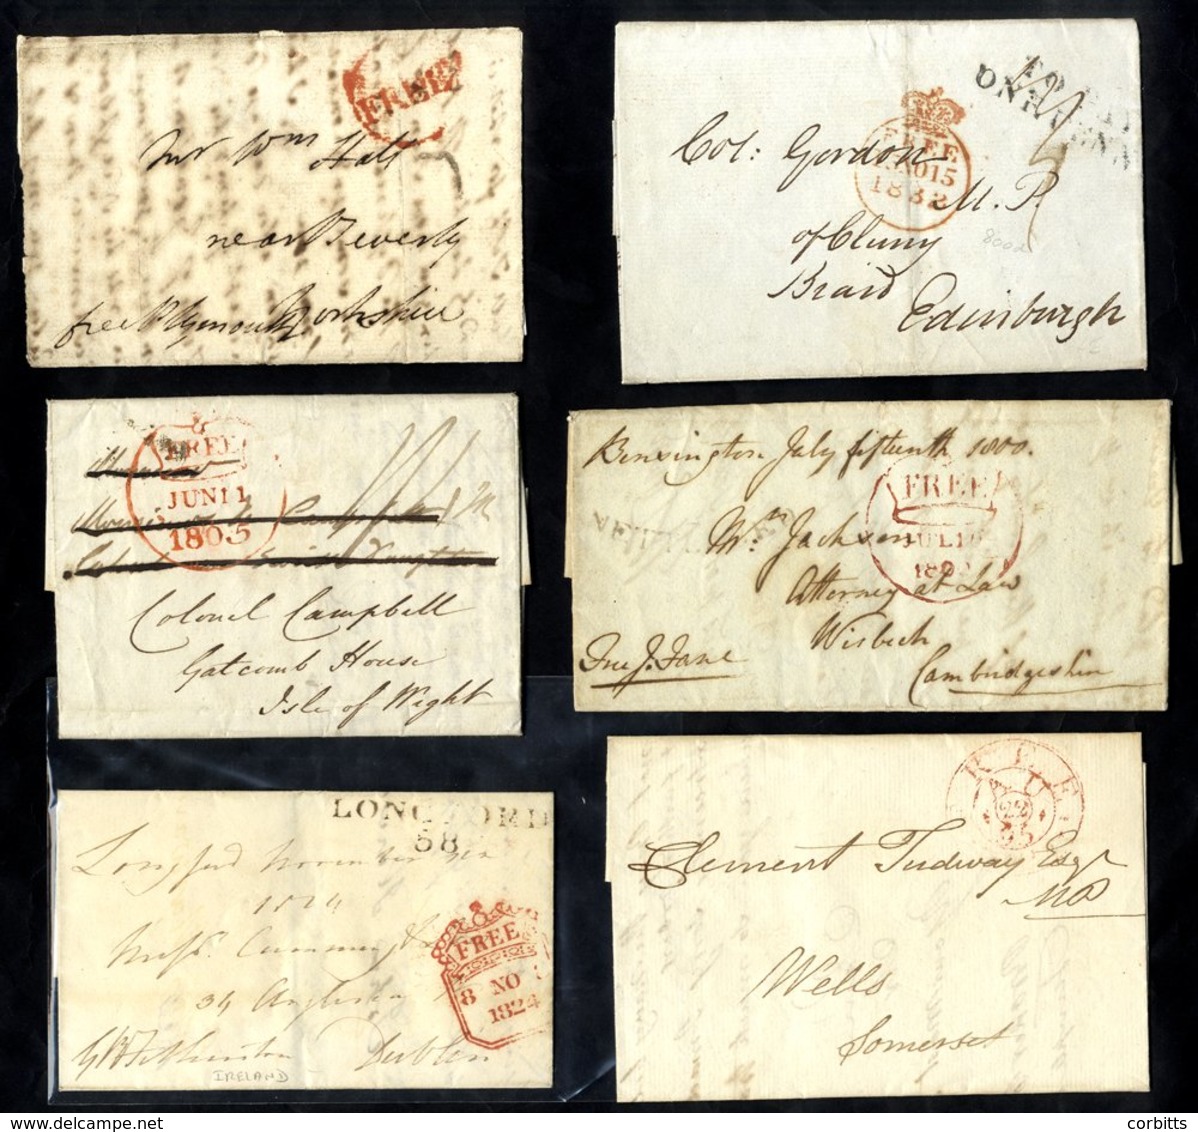 FREE
Mr Wm Hall
near Beverly
Yorkshire
free Plymouth
FREE
15
1832
Col: Gordon
M.P.
of Cluny
Braid
Edinburgh
8002
FREE
JUN 11
1805
Colonel Campbell
Gatcomb House
Isle of Wight
Benxington July fifteenth 1800.
FREE
Mr. Jackson
Attorney at Law
Wisbech
Cambridgeshire
LONGFORD
58
Longford November
1824
FREE
8 NO 8
1824
34
Dublin
IRELAND
FREE
AU
22
35
Clement Tudway Esqr
MP
Wells
Somerset
delcampe.net
corbitts